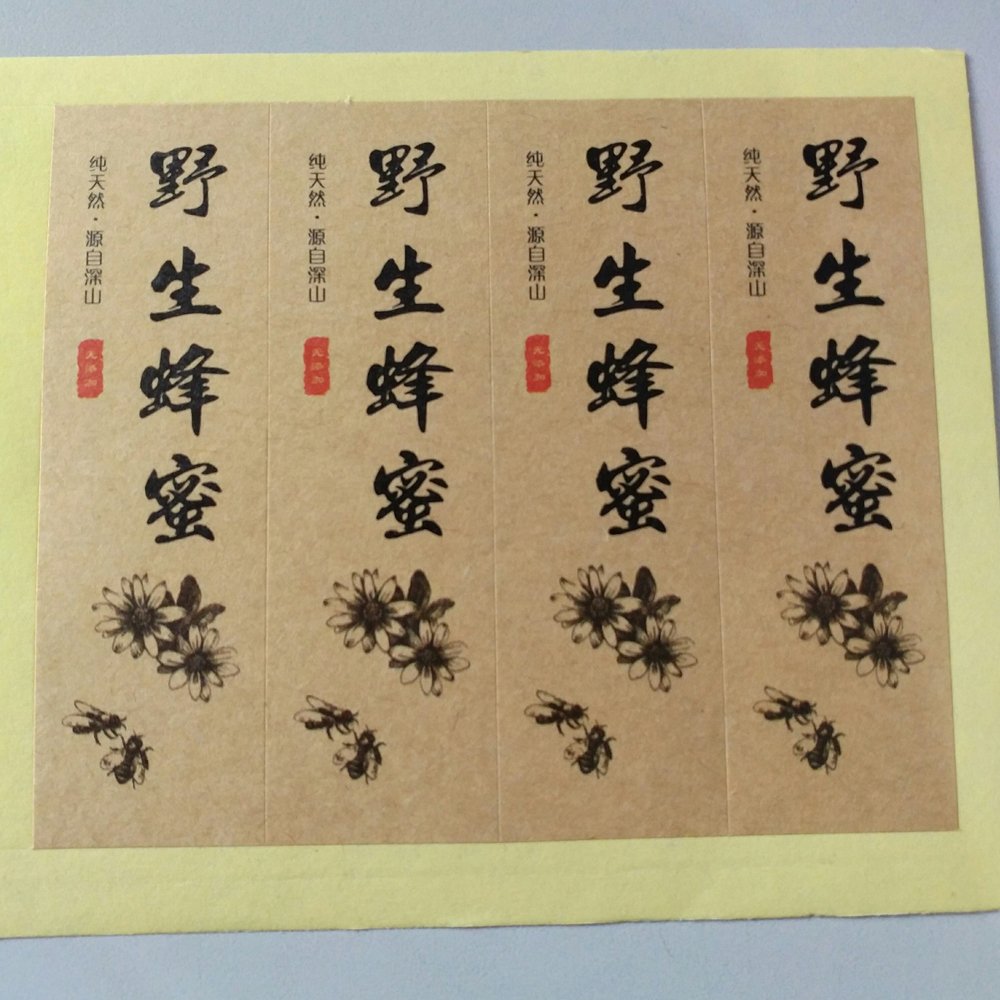 野生蜂蜜
纯天然·源自深山
无添加
野生蜂蜜
纯天然·源自深山
无添加
野生蜂蜜
纯天然·源自深山
无添加
野生蜂蜜
纯天然·源自深山
无添加